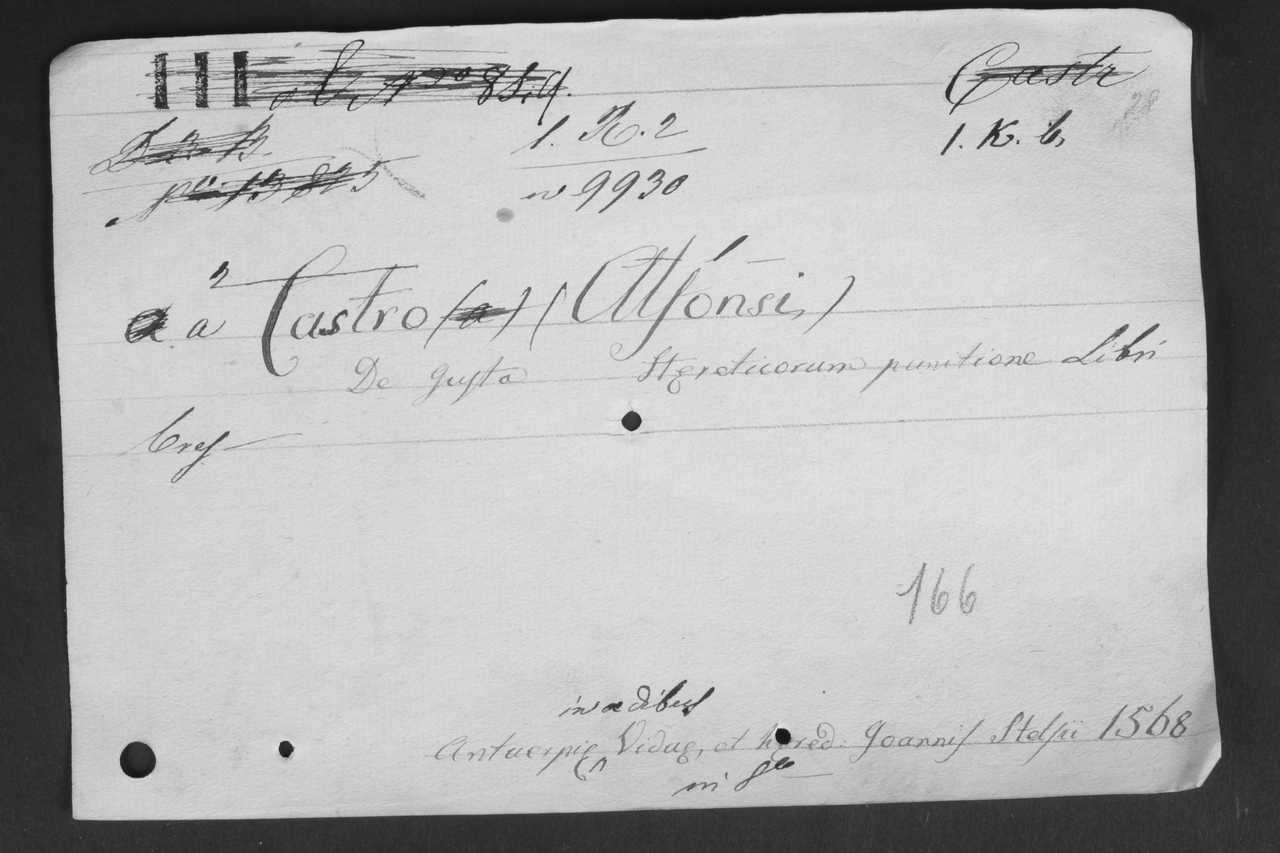 III
Castr
1. R. 2
1. K. 6,
n 9930
a 2 Castro (a) (Alfonsi,)
De Justa Hereticorum punitione Libri
tres
166
in ædibus
Antuerpiæ Viduæ, et hæred. Joannis Stelsii 1568
in 8º